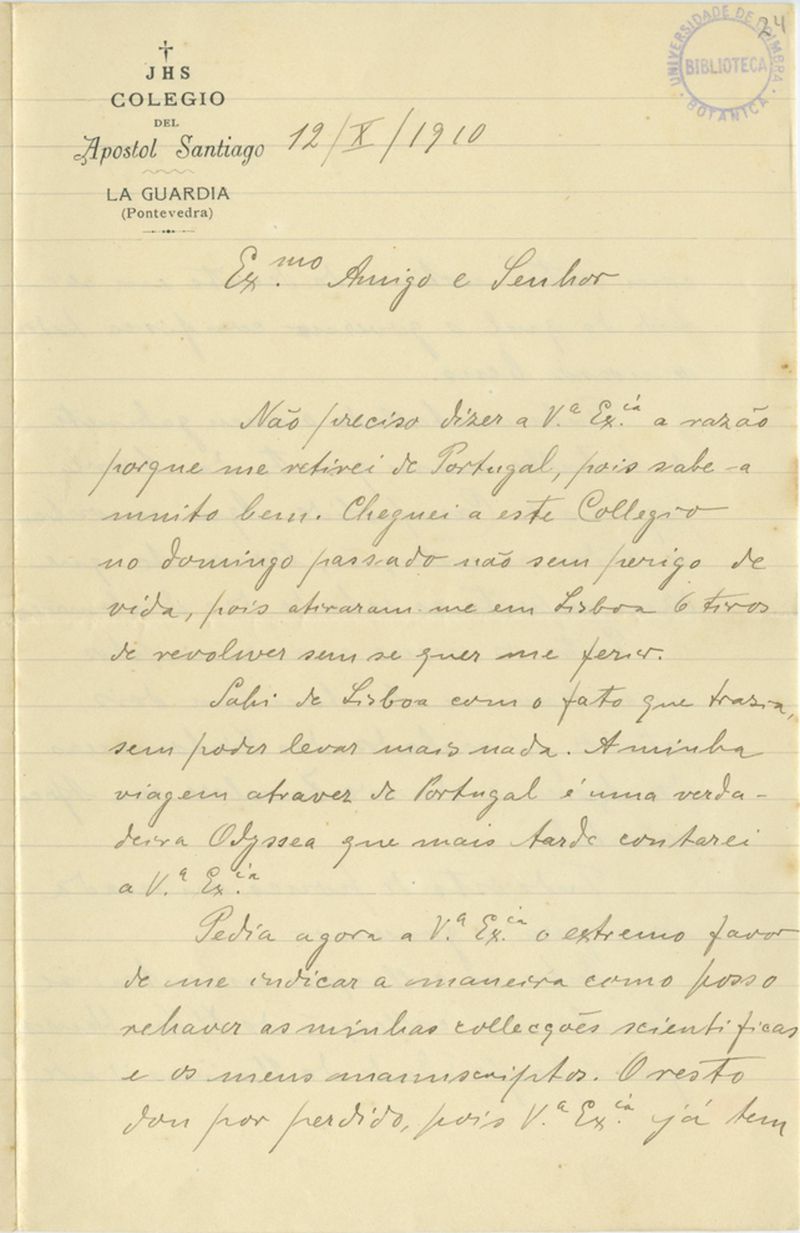 24
UNIVERSIDADE DE COIMBRA
BIBLIOTECA
BOTANICA
JHS
COLEGIO
DEL
Apostol Santiago
LA GUARDIA
(Pontevedra)
12/X/1910
Ex.mo Amigo e Senhor
Não preciso dizer a V.ª Ex.cia a razão
porque me retirei de Portugal, pois sabe-a
muito bem. Cheguei a este Collegio
no domingo passado não sem perigo de
vida, pois atiraram-me em Lisboa 6 tiros
de revolwer sem se quer me ferir.
Sahi de Lisboa com o fato que trazia,
sem poder levar mais nada. A minha
viagem atravez de Portugal é uma verda-
deira Odyssea que mais tarde contarei
a V.ª Ex.cia
Pedia agora a V.ª Ex.cia o extremo favor
de me indicar a maneira como posso
rehaver as minhas collecções scientificas
e os meus manuscriptos. O resto
dou por perdido, pois V.ª Ex.cia já tem